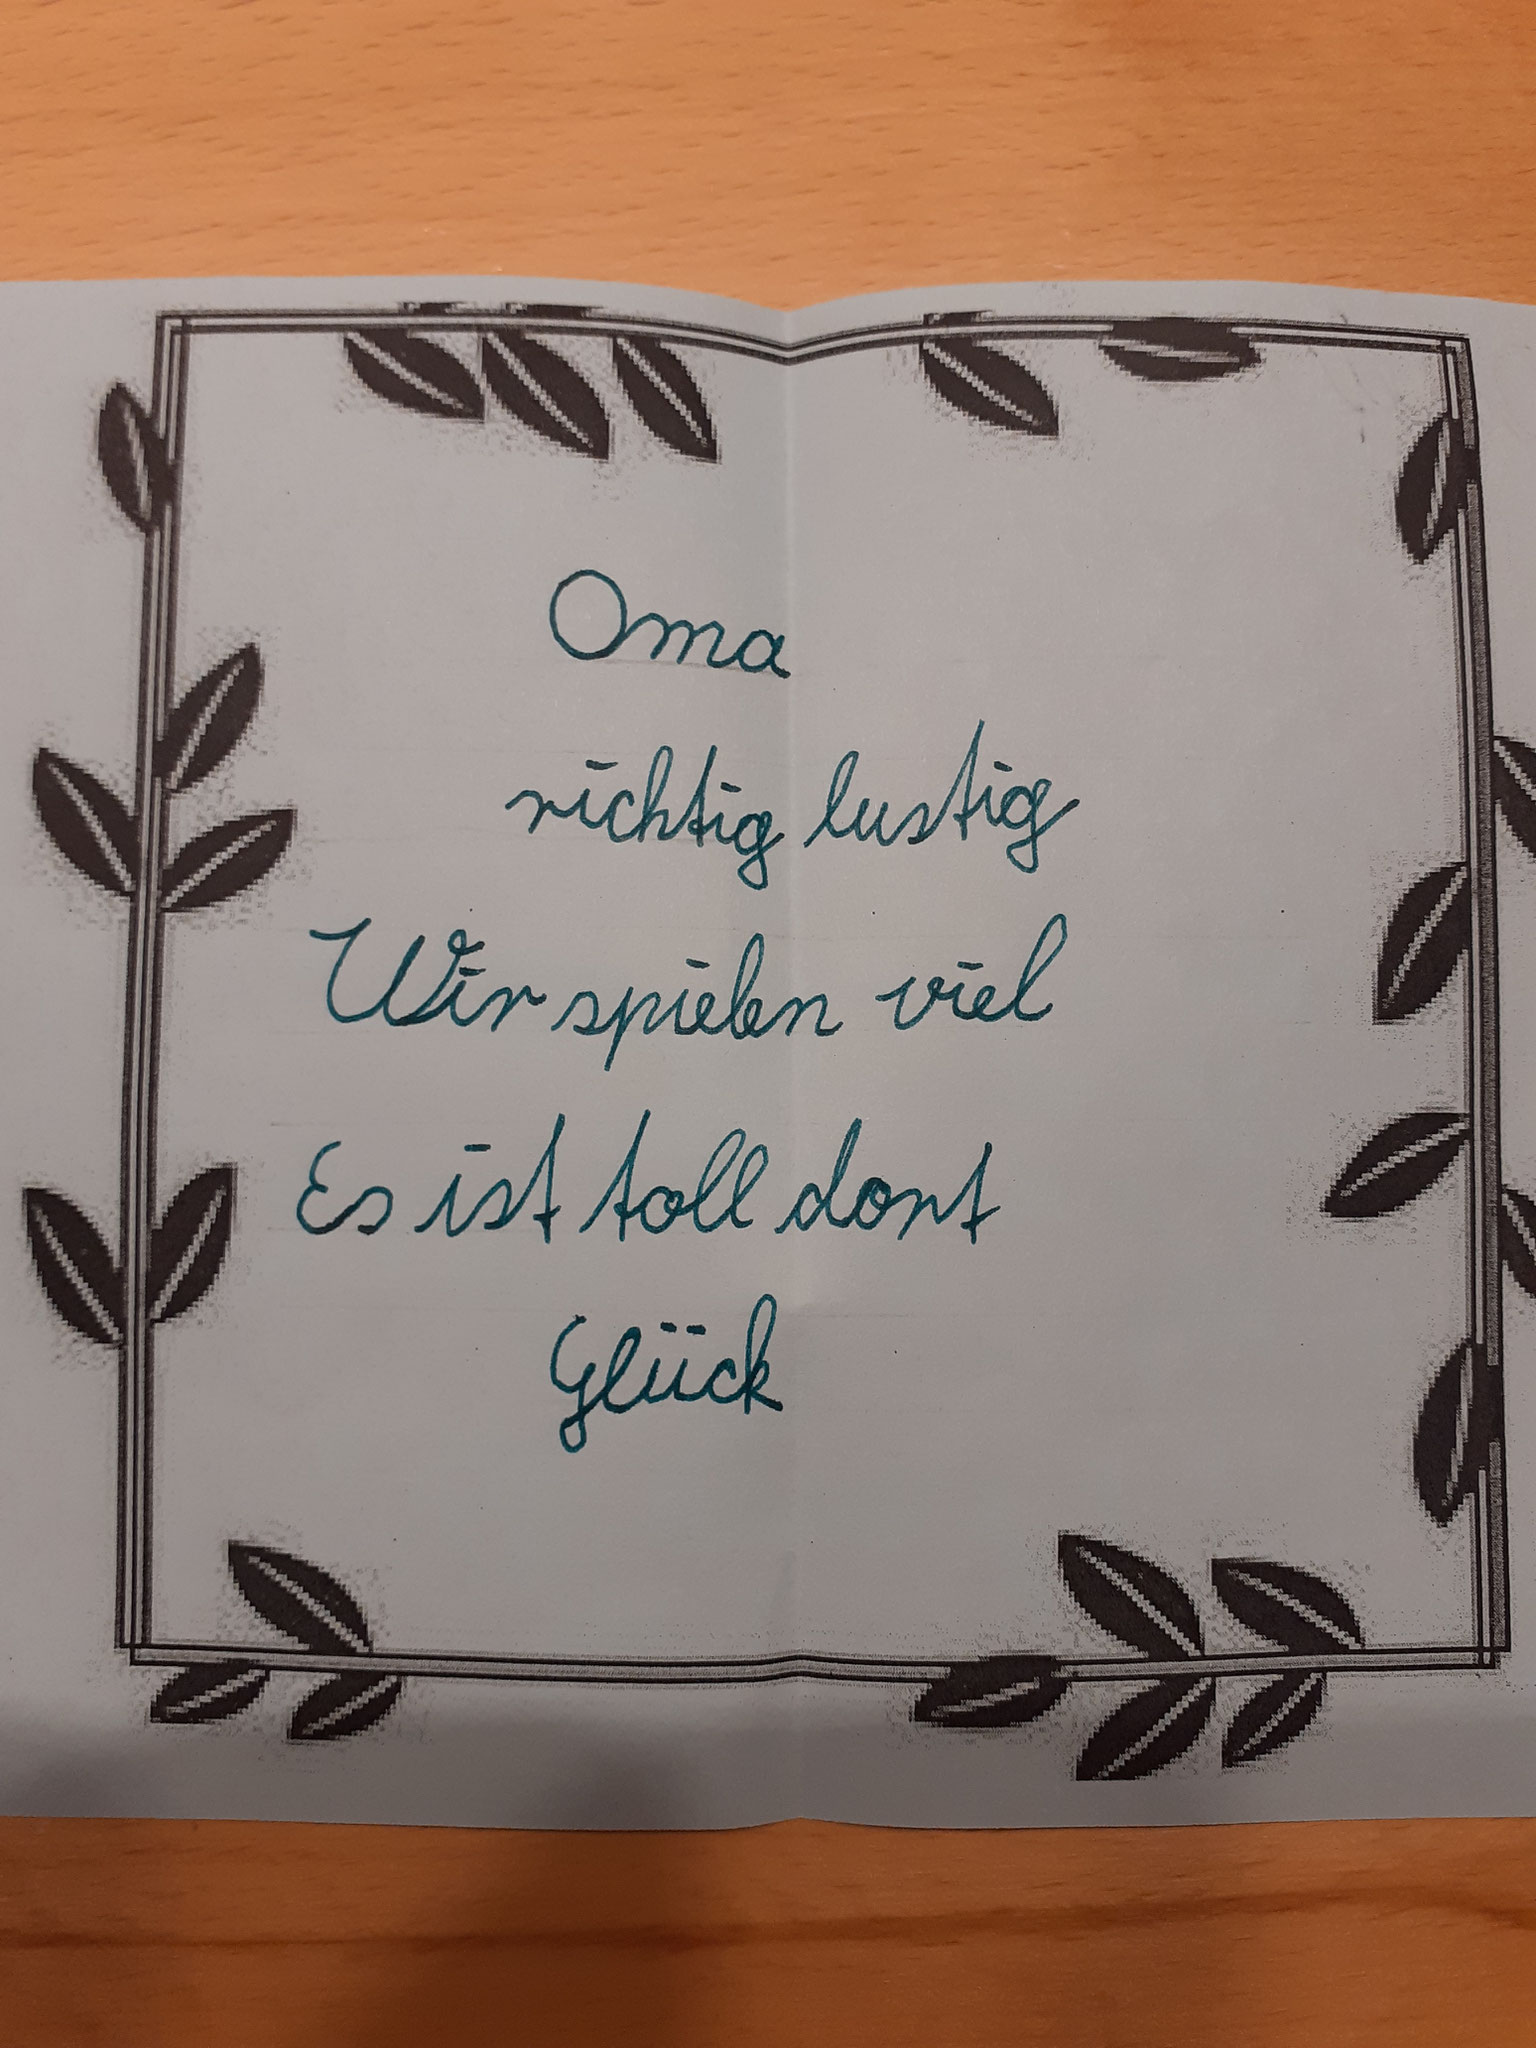 Oma
richtig lustig
Wir spielen viel
Es ist toll dort
Glück